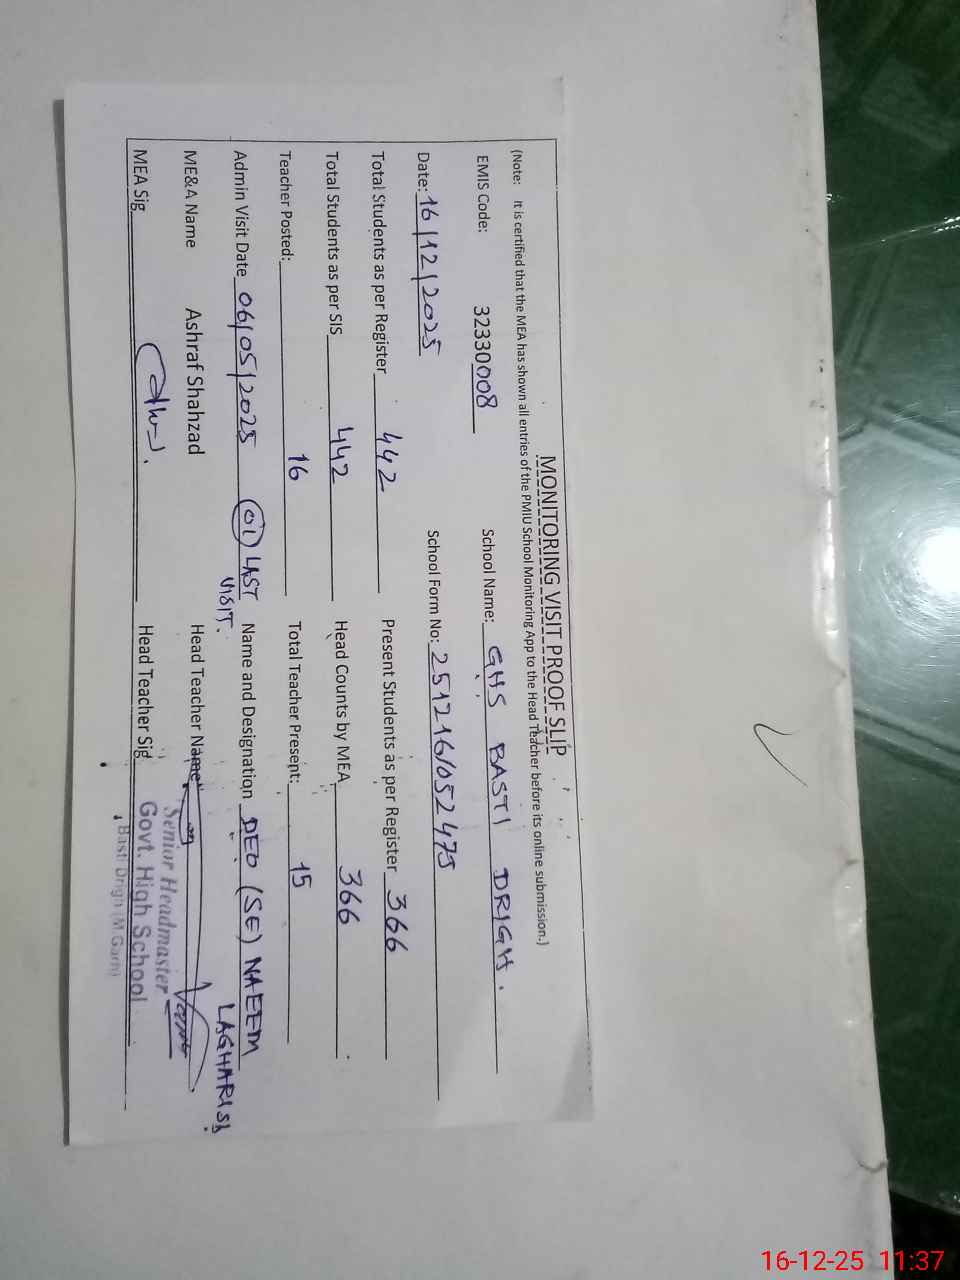 MONITORING VISIT PROOF SLIP
(Note: It is certified that the MEA has shown all entries of the PMIU School Monitoring App to the Head Teacher before its online submission.)
EMIS Code: 32330008 School Name: GHS BASTI DRIGH.
Date: 16/12/2025 School Form No: 251216/052475
Total Students as per Register 442 Present Students as per Register 366
Total Students as per SIS 442 Head Counts by MEA 366
Teacher Posted: 16 Total Teacher Present: 15
Admin Visit Date 06/05/2025 01 LAST VISIT. Name and Designation DEO (SE) NAEEM LAGHARI Sb
ME&A Name Ashraf Shahzad Head Teacher Name
MEA Sig Head Teacher Sig
Senior Headmaster
Govt. High School
Basti Drigh (M.Garh)
16-12-25 11:37